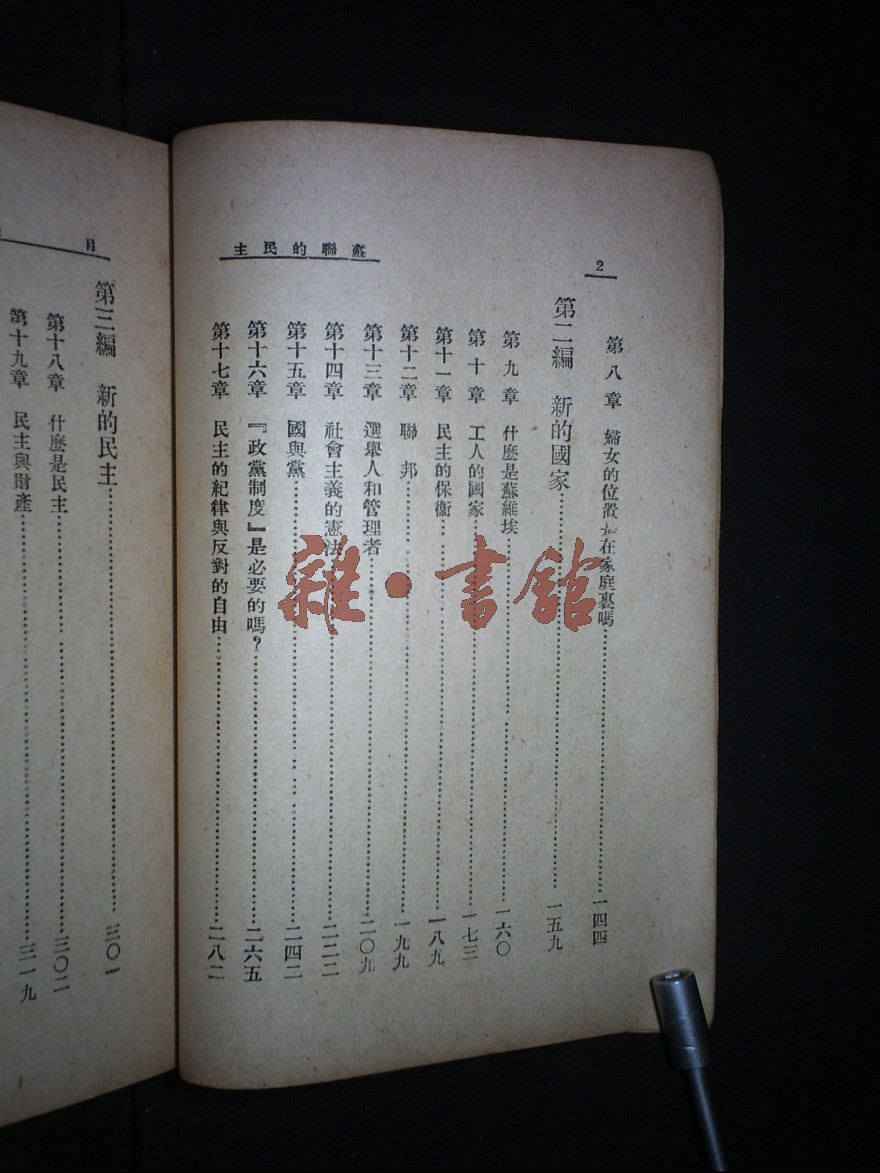 2
主民的聯蘇
第八章 婦女的位置是在家庭裏嗎 一四四
第二編 新的國家 一五九
第九章 什麼是蘇維埃 一六〇
第十章 工人的國家 一七三
第十一章 民主的保衛 一八九
第十二章 聯邦 一九九
第十三章 選舉人和管理者 二〇九
第十四章 社會主義的憲法 二二二
第十五章 國與黨 二四二
第十六章 『政黨制度』是必要的嗎? 二六五
第十七章 民主的紀律與反對的自由 二八二
目
第三編 新的民主 三〇一
第十八章 什麼是民主 三〇二
第十九章 民主與財產 三一九
雜·書館